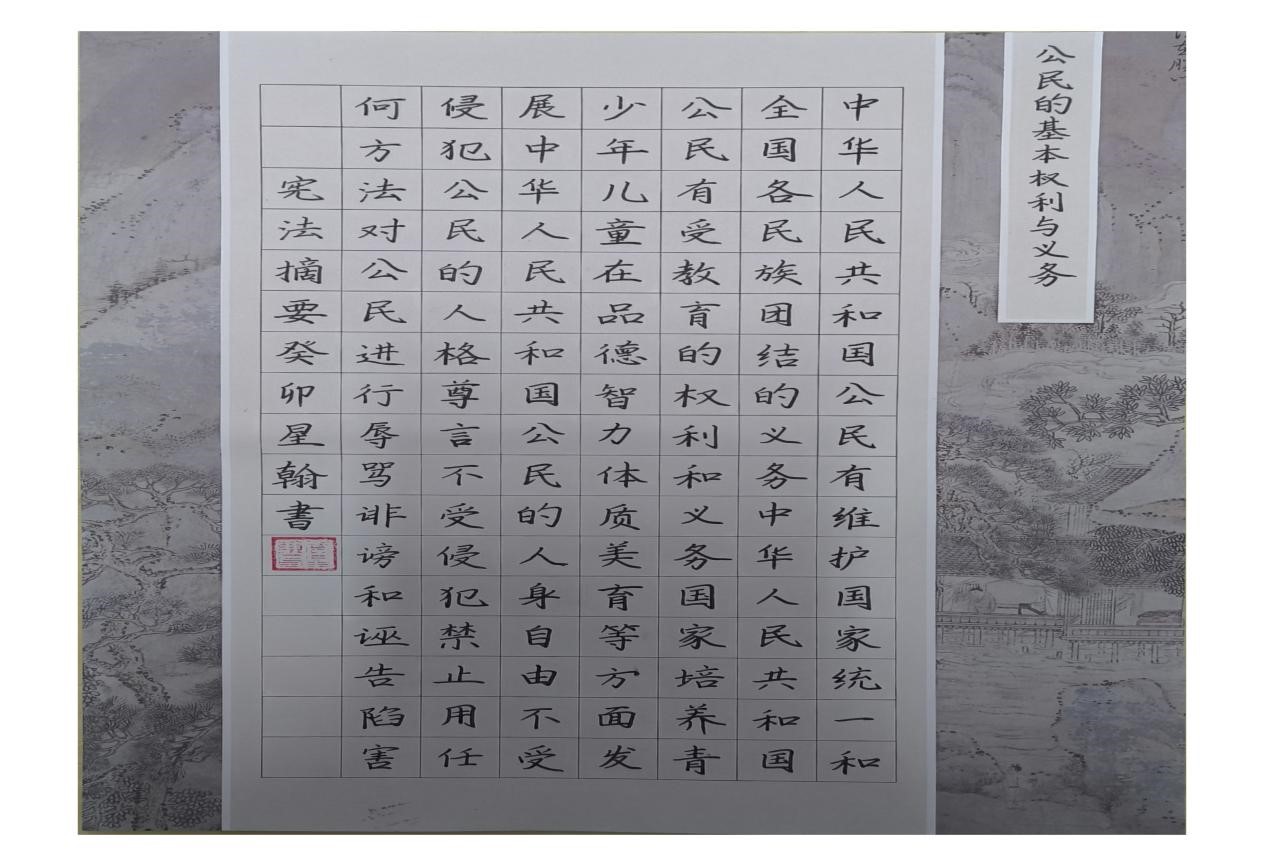 公民的基本权利与义务
中华人民共和国公民有维护国家统一和
全国各民族团结的义务中华人民共和国
公民有受教育的权利和义务国家培养青
少年儿童在品德智力体质美育等方面发
展中华人民共和国公民的人身自由不受
侵犯公民的人格尊言不受侵犯禁止用任
何方法对公民进行辱骂诽谤和诬告陷害
宪法摘要癸卯星翰書